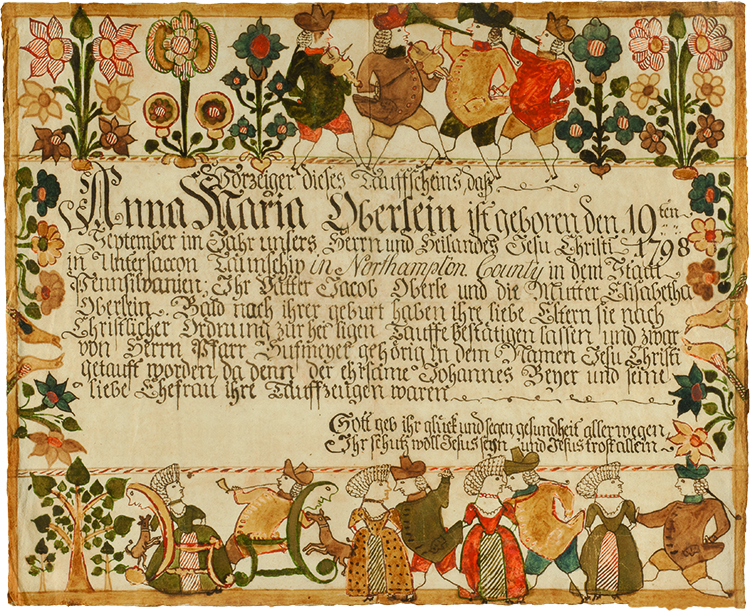 Vorzeiger dieses Tauffscheins daß
Anna Maria Oberlein ist geboren den 19ten
September im Jahr unsers Herrn und Heilandes Jesu Christi 1798
in Untersaccon Taunschip in Northampton County in dem Staat
Pennsilvanien, Ihr Vatter Jacob Oberle und die Mutter Elisabetha
Oberlein. Bald nach ihrer geburt haben ihre liebe Eltern sie nach
Christlicher Ordnung zur heiligen Tauffe bestätigen lassen und zwar
von Herrn Pfarr gehörig in dem Namen Jesu Christi
getauft worden, da denn der ehrsame Johannes Beyer und seine
liebe Ehefrau ihre Tauffzeugen waren
Gott geb ihr glück und segen gesundheit allerwegen,
Ihr schutz woll Jesus seyn und Jesus trost allein